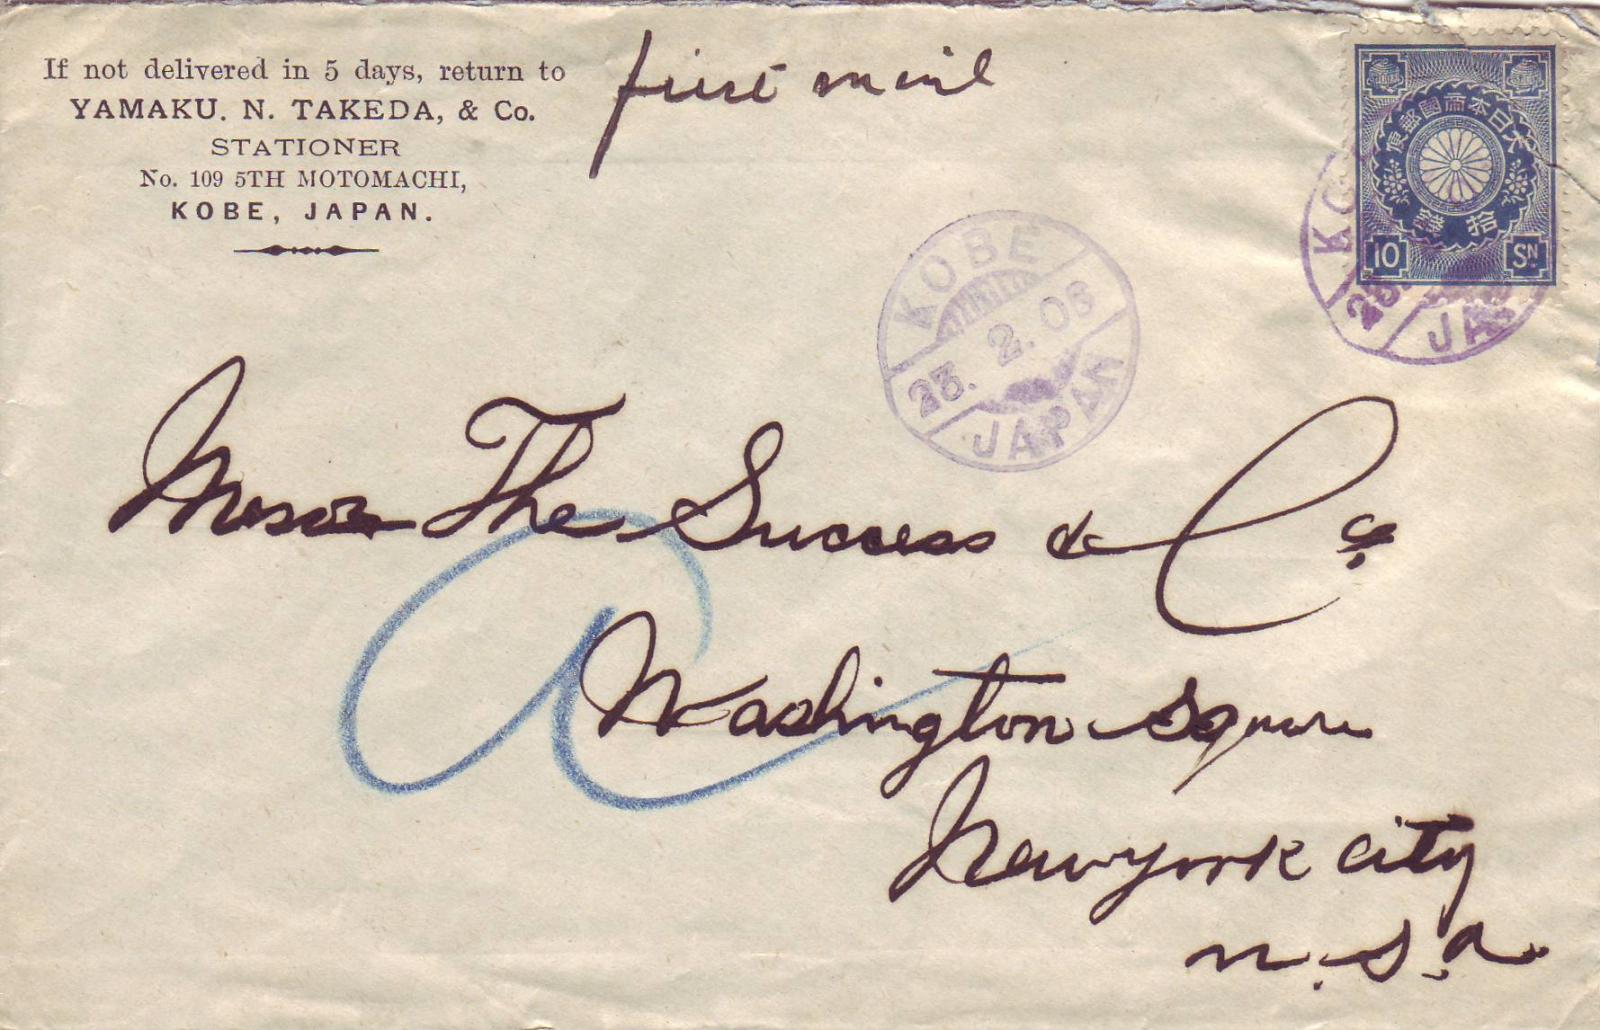 If not delivered in 5 days, return to
YAMAKU. N. TAKEDA, & Co.
STATIONER
No. 109 5TH MOTOMACHI,
KOBE, JAPAN.
first mail
大日本帝國郵便
拾錢
10 SN
KOBE
23. 2. 06
JAPAN
KO
23.
JA
The Success & Co.
Washington Square
New york city
U.S.A.